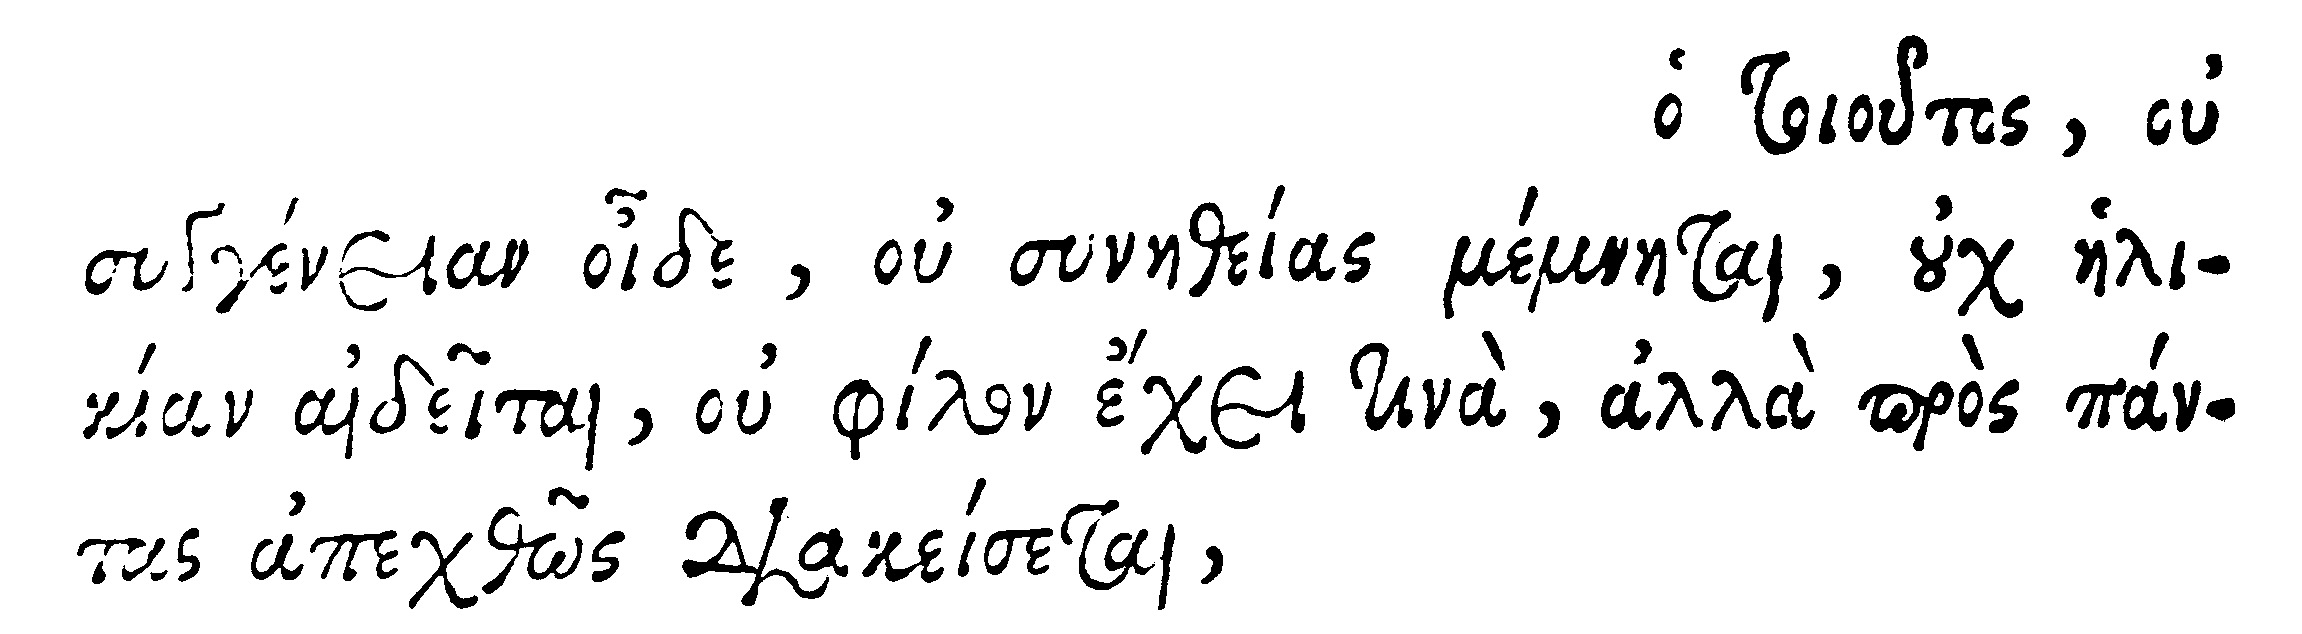 ὁ τοιοῦτος, οὐ
συγγένειαν οἶδε, οὐ συνηθείας μέμνηται, οὐχ ἡλι-
κίαν αἰδεῖται, οὐ φίλον ἔχει τινὰ, ἀλλὰ πρὸς πάν-
τας ἀπεχθῶς διακείσεται,